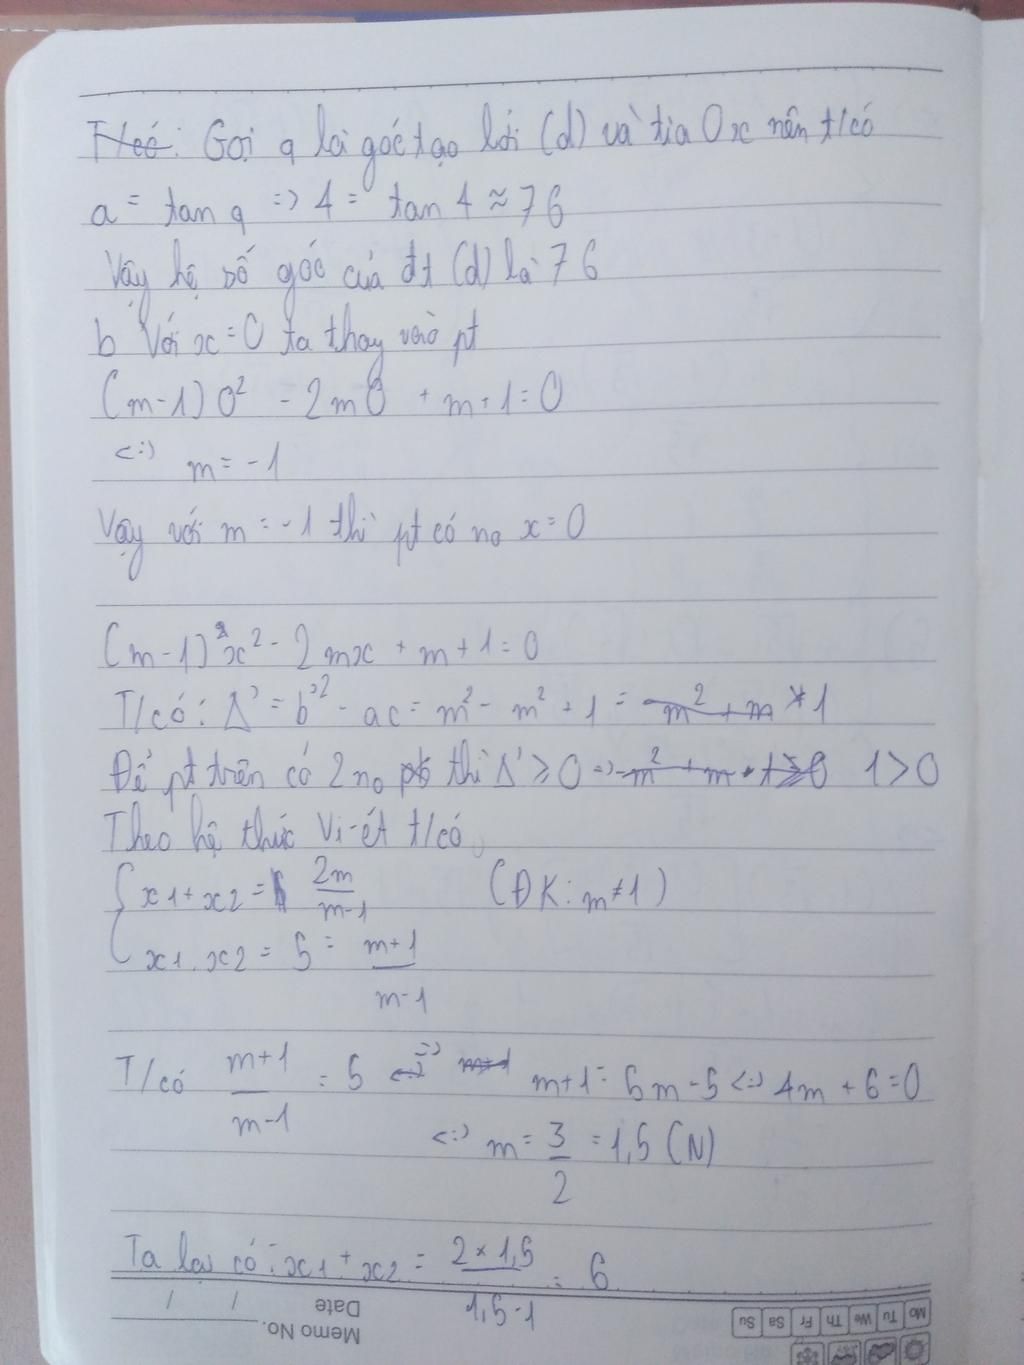 T/có: Gọi q là góc tạo bởi (d) và tia Ox nên t/có
a = tan q => 4 = tan 4 ≈ 76
Vậy hệ số góc của đt (d) là 76
b Với x = 0 ta thay vào pt
(m-1) 0² - 2m0 + m + 1 = 0
<=> m = -1
Vậy với m = -1 thì pt có no x = 0
(m-1) x² - 2mx + m + 1 = 0
T/có: Δ' = b'² - ac = m² - m² + 1 = m² + m 1
Để pt trên có 2 no pb thì Δ' ≥ 0 => m² + m + 1 ≥ 0 1 > 0
Theo hệ thức Vi-ét t/có
{ x1 + x2 = 2m/m-1 (ĐK: m ≠ 1)
x1 . x2 = 5 = m+1/m-1
T/có m+1/m-1 = 5 <=> => m+1 m+1 = 5m - 5 <=> 4m + 6 = 0
<=> m = 3/2 = 1,5 (N)
Ta lại có: x1 + x2 = 2 × 1,5/1,5-1 = 6
Memo No.
Date / /
Mo Tu We Th Fr Sa Su